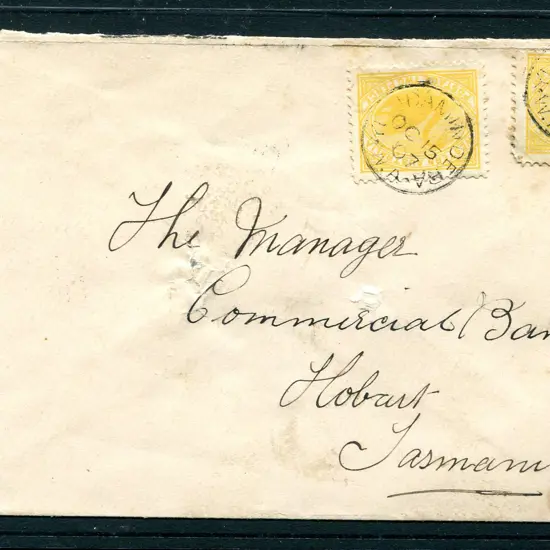 OC 15
07
The Manager
Commercial Ban
Hobart
Tasmani